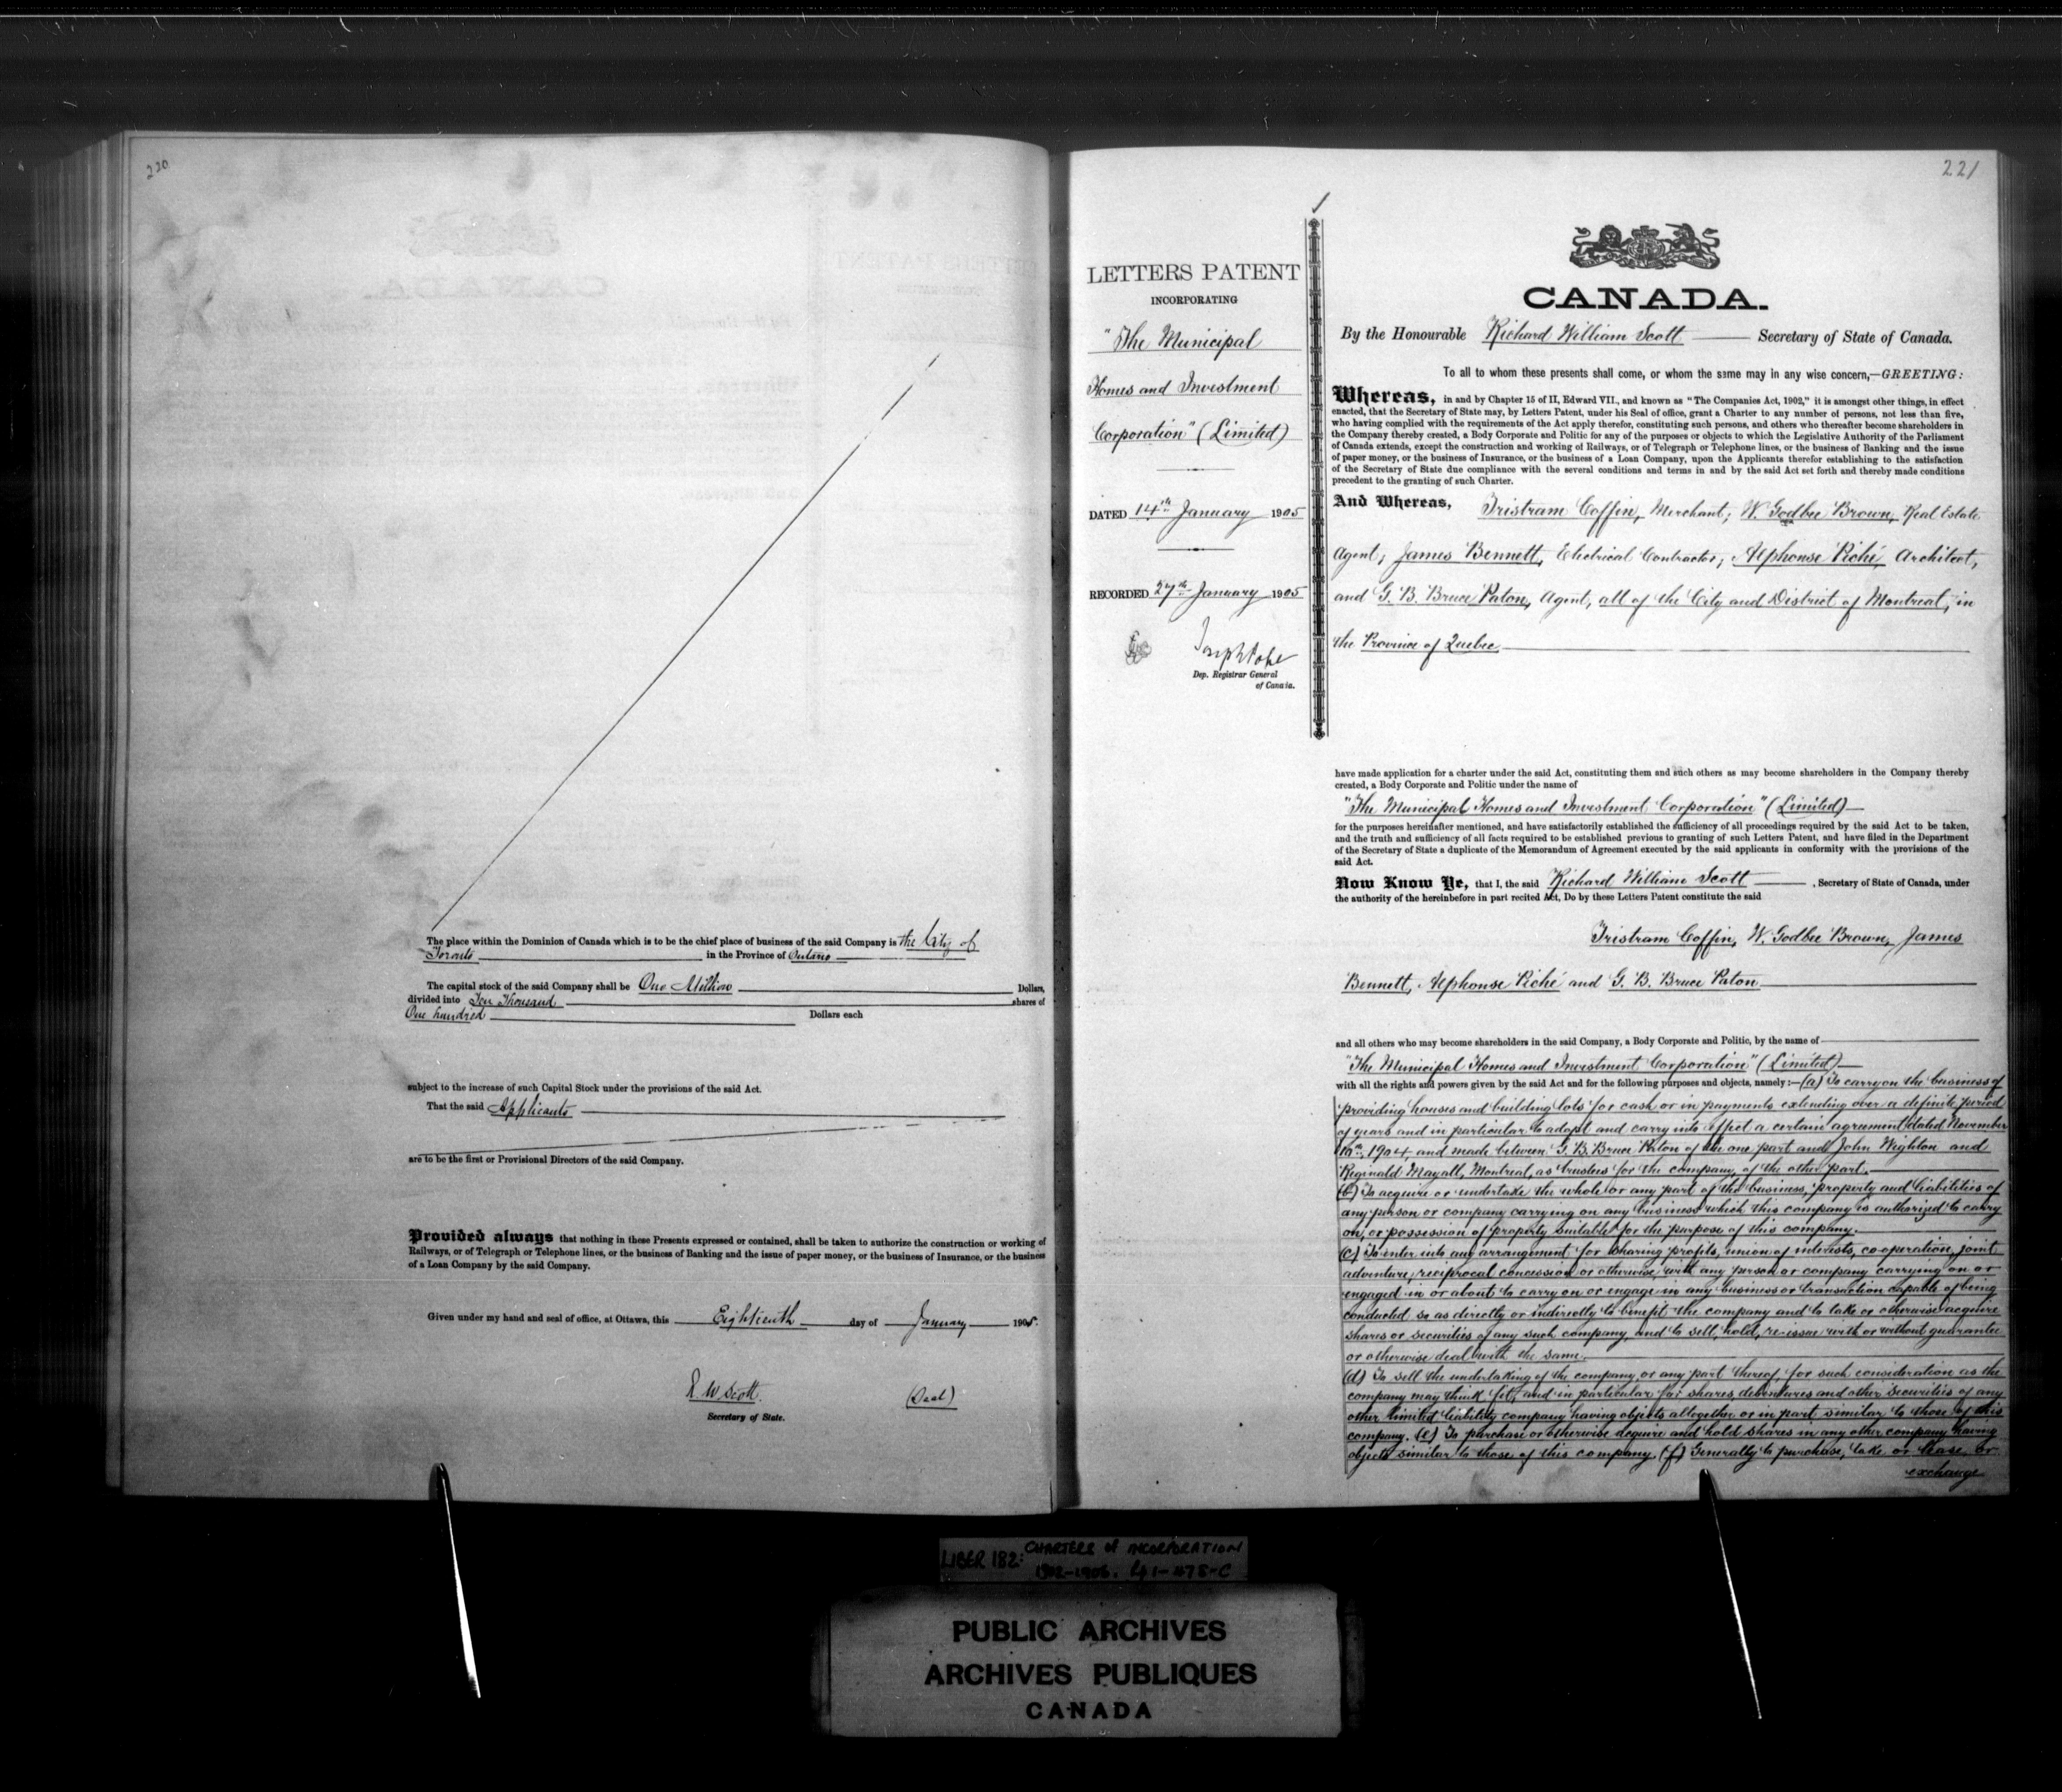 220
The place within the Dominion of Canada which is to be the chief place of business of the said Company is the City of
Toronto in the Province of Ontario
The capital stock of the said Company shall be One Million Dollars,
divided into Ten Thousand shares of
One hundred Dollars each
subject to the increase of such Capital Stock under the provisions of the said Act.
That the said Applicants
are to be the first or Provisional Directors of the said Company.
Provided always that nothing in these Presents expressed or contained, shall be taken to authorize the construction or working of
Railways, or of Telegraph or Telephone lines, or the business of Banking and the issue of paper money, or the business of Insurance, or the business
of a Loan Company by the said Company.
Given under my hand and seal of office, at Ottawa, this Eighteenth day of January 1905.
R. W. Scott
(Seal)
Secretary of State.
221
LETTERS PATENT
INCORPORATING
"The Municipal
Homes and Investment
Corporation" (Limited)
DATED 14th January 1905
RECORDED 27th January 1905
Joseph Pope
Dep. Registrar General
of Canada.
CANADA.
By the Honourable Richard William Scott Secretary of State of Canada.
To all to whom these presents shall come, or whom the same may in any wise concern,—GREETING:
Whereas, in and by Chapter 15 of II, Edward VII., and known as "The Companies Act, 1902," it is amongst other things, in effect
enacted, that the Secretary of State may, by Letters Patent, under his Seal of office, grant a Charter to any number of persons, not less than five,
who having complied with the requirements of the Act apply therefor, constituting such persons, and others who thereafter become shareholders in
the Company thereby created, a Body Corporate and Politic for any of the purposes or objects to which the Legislative Authority of the Parliament
of Canada extends, except the construction and working of Railways, or of Telegraph or Telephone lines, or the business of Banking and the issue
of paper money, or the business of Insurance, or the business of a Loan Company, upon the Applicants therefor establishing to the satisfaction
of the Secretary of State due compliance with the several conditions and terms in and by the said Act set forth and thereby made conditions
precedent to the granting of such Charter.
And Whereas, Tristram Coffin, Merchant; W. Godbee Brown, Real Estate
Agent; James Bennett, Electrical Contractor; Alphonse Piché, Architect,
and G. B. Bruce Paton, Agent, all of the City and District of Montreal, in
the Province of Quebec
have made application for a charter under the said Act, constituting them and such others as may become shareholders in the Company thereby
created, a Body Corporate and Politic under the name of
"The Municipal Homes and Investment Corporation" (Limited)
for the purposes hereinafter mentioned, and have satisfactorily established the sufficiency of all proceedings required by the said Act to be taken,
and the truth and sufficiency of all facts required to be established previous to granting of such Letters Patent, and have filed in the Department
of the Secretary of State a duplicate of the Memorandum of Agreement executed by the said applicants in conformity with the provisions of the
said Act.
Now Know Ye, that I, the said Richard William Scott, Secretary of State of Canada, under
the authority of the hereinbefore in part recited Act, Do by these Letters Patent constitute the said
Tristram Coffin, W. Godbee Brown, James
Bennett, Alphonse Piché and G. B. Bruce Paton
and all others who may become shareholders in the said Company, a Body Corporate and Politic, by the name of
"The Municipal Homes and Investment Corporation" (Limited)
with all the rights and powers given by the said Act and for the following purposes and objects, namely:—(a) To carry on the business of
providing houses and building lots for cash or in payments extending over a definite period
of years and in particular to adopt and carry into effect a certain agreement dated November
1904, and made between G. B. Bruce Paton of the one part and John Wighton and
Reginald Mayall, Montreal, as trustees for the company, of the other part.
(b) To acquire or undertake the whole or any part of the business, property and liabilities of
any person or company carrying on any business which this company is authorized to carry
on, or possession of property suitable for the purpose of this company.
(c) To enter into any arrangement for sharing profits, union of interests, co-operation, joint
adventure, reciprocal concession or otherwise, with any person or company carrying on or
engaged in or about to carry on or engage in any business or transaction capable of being
conducted so as directly or indirectly to benefit the company and to take or otherwise acquire
shares or securities of any such company, and to sell, hold, re-issue with or without guarantee
or otherwise deal with the same.
(d) To sell the undertaking of the company or any part thereof for such consideration as the
company may think fit, and in particular for shares debentures and other securities of any
other limited liability company having objects altogether or in part similar to those of this
company. (e) To purchase or otherwise acquire and hold shares in any other company having
objects similar to those of this company. (f) Generally to purchase, take on lease, or
exchange
LIBER 182: CHARTERS of INCORPORATION
1902-1906.
PUBLIC ARCHIVES
ARCHIVES PUBLIQUES
CANADA